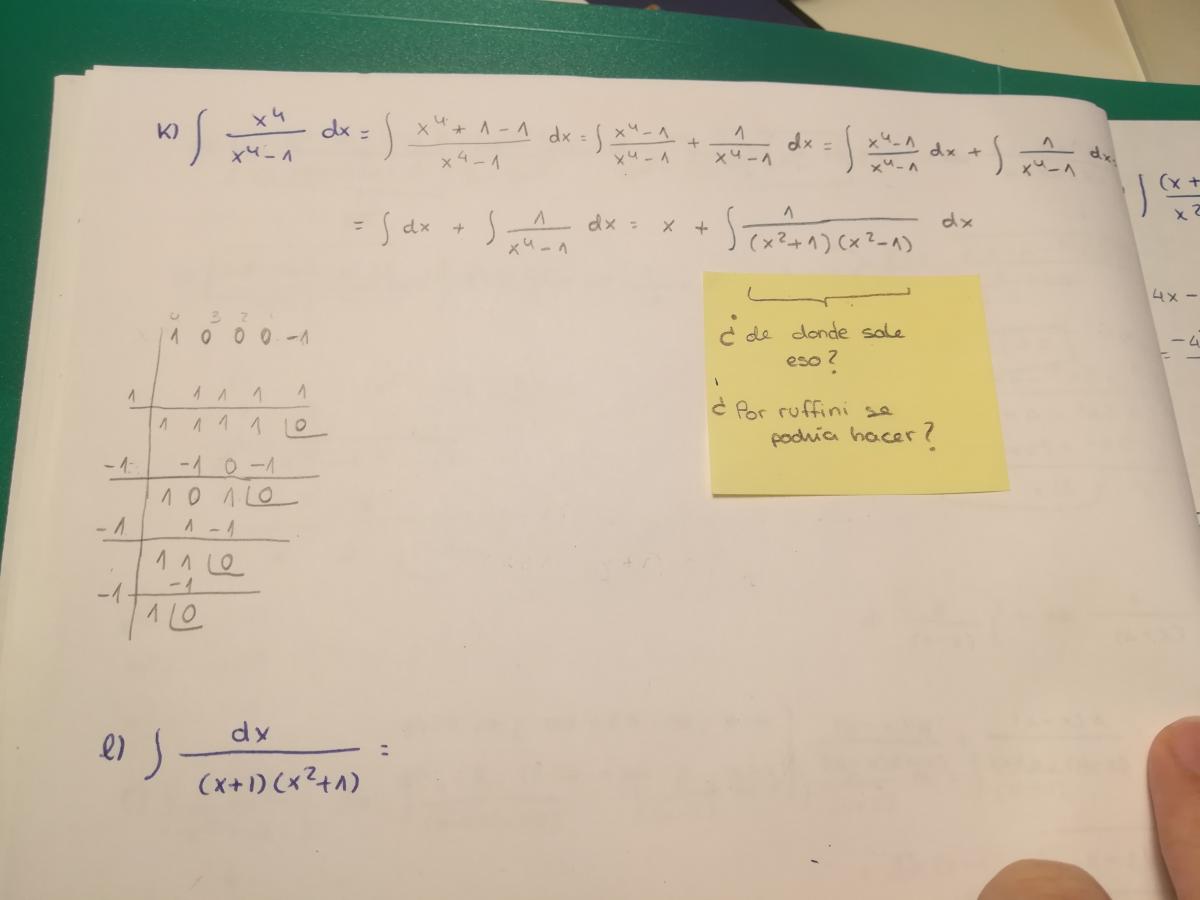 K) ∫ x⁴/(x⁴-1) dx = ∫ (x⁴+1-1)/(x⁴-1) dx = ∫ (x⁴-1)/(x⁴-1) + 1/(x⁴-1) dx = ∫ (x⁴-1)/(x⁴-1) dx + ∫ 1/(x⁴-1) dx =
= ∫ dx + ∫ 1/(x⁴-1) dx = x + ∫ 1/((x²+1)(x²-1)) dx
¿de donde sale
eso?
¿Por ruffini se
podria hacer?
4 3 2
1 0 0 0 -1
1 | 1 1 1 1
1 1 1 1 |0
-1 | -1 0 -1
1 0 1 |0
-1 | 1 -1
1 1 |0
-1 | -1
1 |0
l) ∫ dx/((x+1)(x²+1)) =
∫ (x+
x²
4x -
= -4